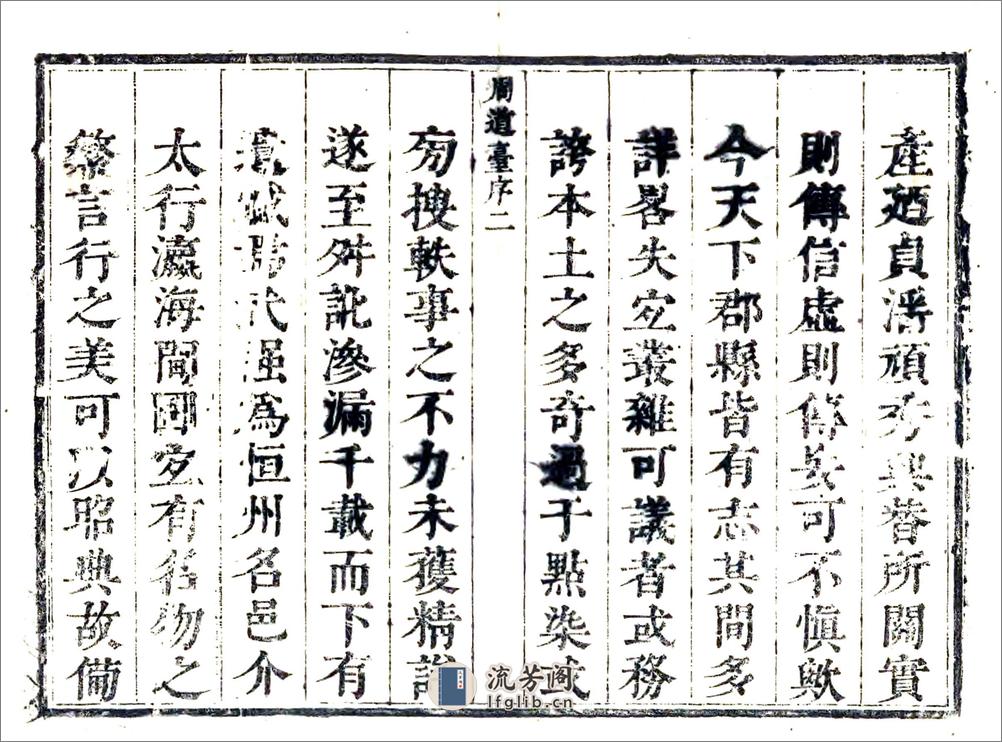 產廼貞淫頑秀與替所關實
則傳信虛則傳可不慎歟
今天下郡縣皆有志其間多
詳畧失宜叢雜可議者或務
誇本土之多奇過于點染或
周道臺序二
旁搜軼事之不力未獲精詳
遂至舛訛滲漏千載而下有
武强爲恒州名邑介
太行瀛海間固宜有名物之
繁言行之美可以昭典故備
流芳阁
lfglib.cn